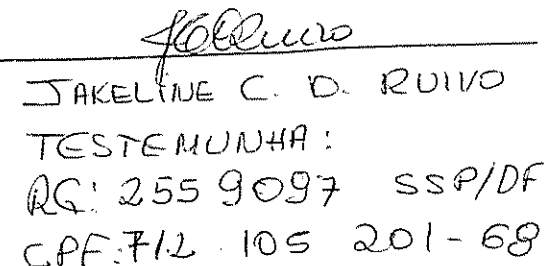 JAKELINE C. D. RUIVO
TESTEMUNHA:
RG: 255 9097 SSP/DF
CPF: 712 105 201-68